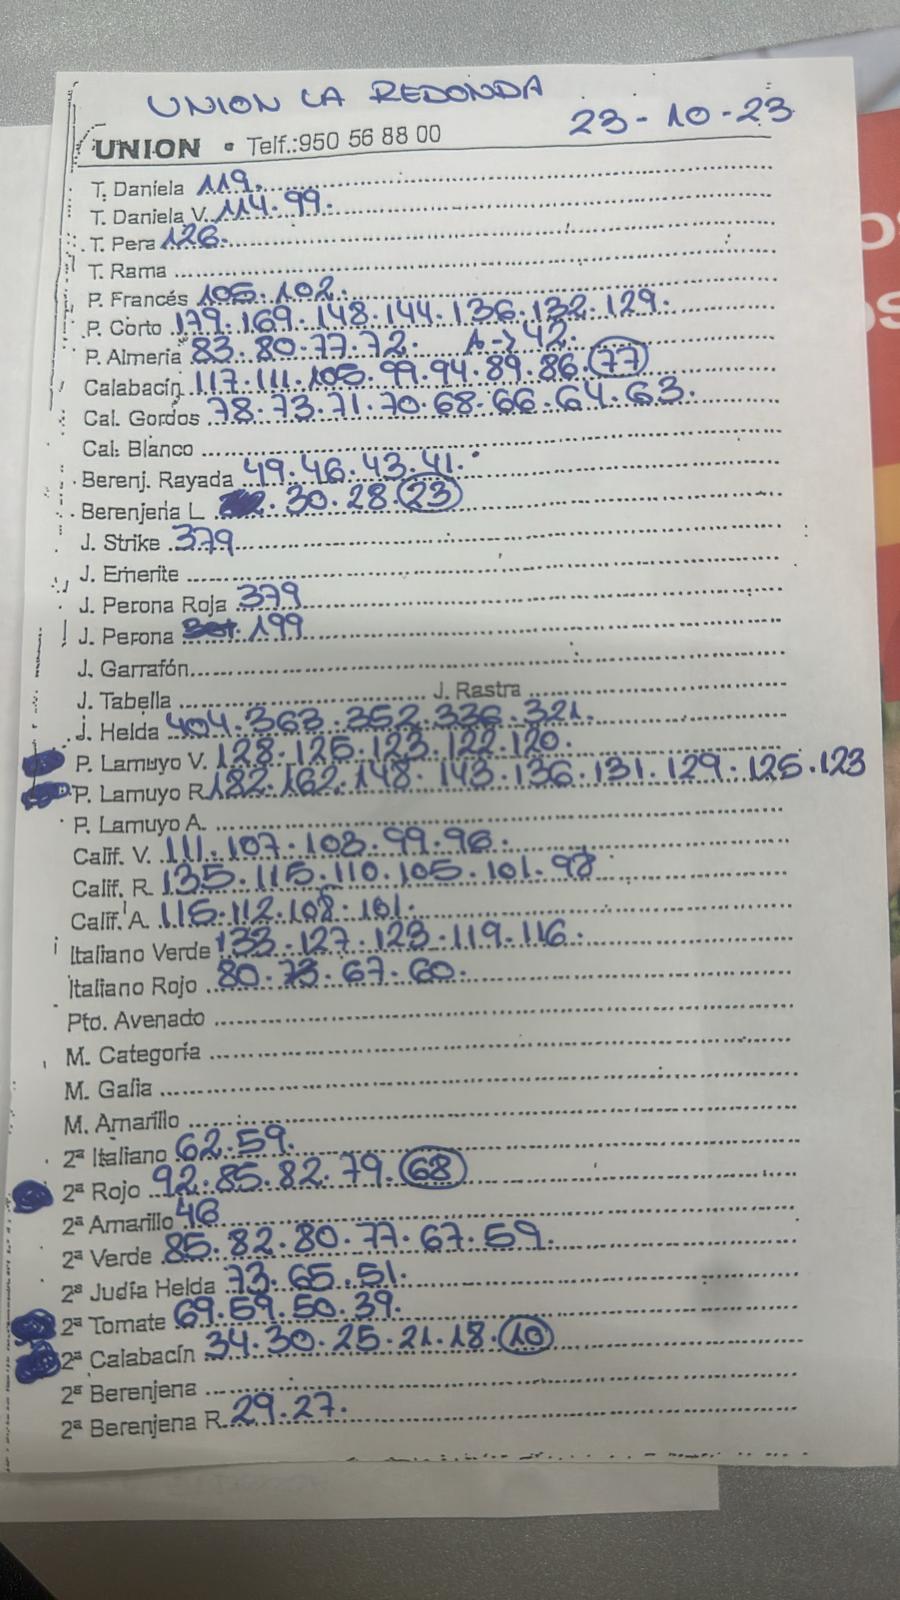 UNION LA REDONDA
23-10-23
UNION • Telf.:950 56 88 00
T. Daniela 119.
T. Daniela V. 114.99.
T. Pera 126.
T. Rama
P. Francés 105.102.
P. Corto 179.169.148.144.136.132.129.
P. Almeria 83.80.77.72. A->42.
Calabacín 117.111.105.99.94.89.86.77
Cal. Gordos 78.73.71.70.68.66.64.63.
Cal. Blanco
Berenj. Rayada 49.46.43.41.
Berenjena L. 30.28.23
J. Strike 379
J. Emerite
J. Perona Roja 379
J. Perona 199
J. Garrafón
J. Tabella J. Rastra
J. Helda 404.363.352.336.321.
P. Lamuyo V. 128.125.123.122.120.
P. Lamuyo R. 182.162.148.143.136.131.129.125.123
P. Lamuyo A.
Calif. V. 111.107.103.99.96.
Calif. R. 135.115.110.105.101.98
Calif. A. 115.112.108.101.
Italiano Verde 133.127.123.119.116.
Italiano Rojo 80.73.67.60.
Pto. Avenado
M. Categoría
M. Galia
M. Amarillo
2ª Italiano 62.59.
2ª Rojo 92.85.82.79.68
2ª Amarillo 46
2ª Verde 85.82.80.77.67.59.
2ª Judía Helda 73.65.51.
2ª Tomate 69.59.50.39.
2ª Calabacín 34.30.25.21.18.10
2ª Berenjena
2ª Berenjena R. 29.27.